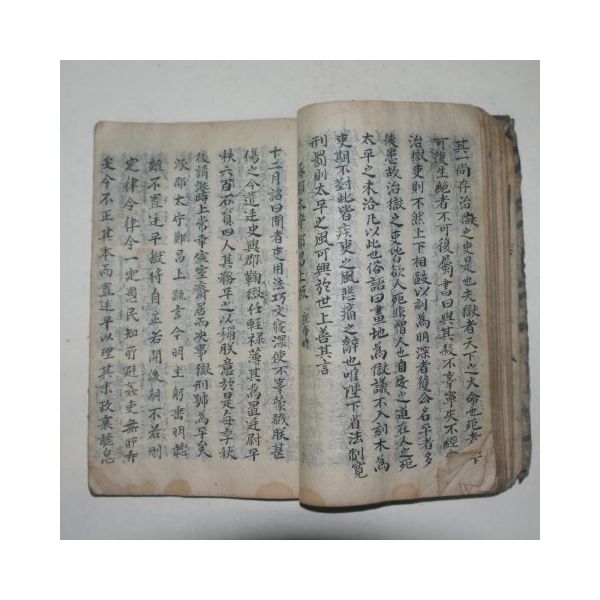 其一尚存治獄之吏是也夫獄者天下之大命也死者
可復生絕者不可復屬書曰與其殺不辜寧失不經今
治獄吏則不然上下相敺以刻為明深者獲公名平者多
後患故治獄之吏皆欲人死非憎人也自安之道在人之死
太平之未洽凡以此也俗語曰畫地為獄議不入刻木為
吏期不對此皆疾吏之風悲痛之辭也唯陛下省法制寬
刑罰則太平之風可興於世上善其言
涿郡太守鄭昌上疏
十二月詔曰間者吏用法巧文寢深使不辜蒙戮朕甚
傷之今遣廷史與郡鞠獄任輕祿薄其為置廷尉平
秩六百石員四人其務平之以稱朕意於是每季秋
後請讞時上常幸宣室齋居而決事獄刑號為平矣
涿郡太守鄭昌上疏言今明主躬垂明聽
雖不置廷平獄將自正若開後嗣不若刪
定律令律令一定愚民知所避姦吏無所弄
矣今不正其本而置廷平以理其末政衰聽怠